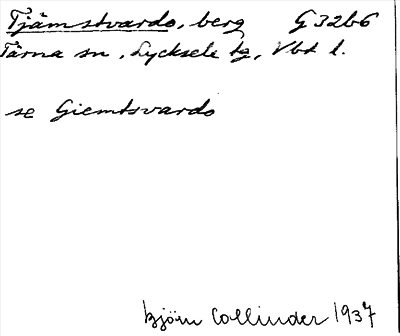 Tjämstvardo, berg G 32b6
Tärna sn, Lycksele tg, Vbt l.
se Giemtsvardo
Björn Collinder 1937